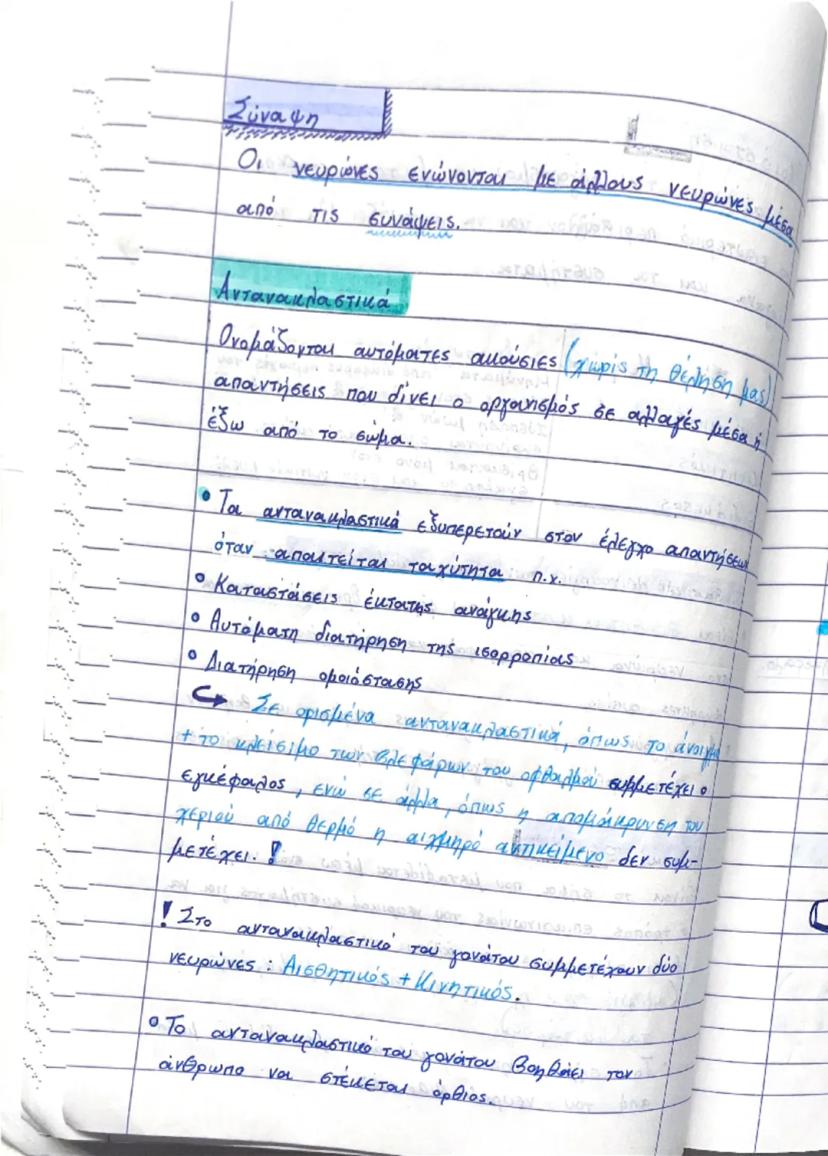 Σύναψη
Οι νευρώνες ενώνονται με άλλους νευρώνες μέσα
από τις συνάψεις.
Αντανακλαστικά
Ονομάζονται αυτόματες ακούσιες (χωρίς τη θέληση μας)
απαντήσεις που δίνει ο οργανισμός σε αλλαγές μέσα ή
έξω από το σώμα.
• Τα αντανακλαστικά εξυπερετούν στον έλεγχο απαντήσεων
όταν απαιτείται ταχύτητα π.χ.
• Καταστάσεις έκτατης ανάγκης
• Αυτόματη διατήρηση της ισορροπίας
• Διατήρηση ομοιόστασης
↪ Σε ορισμένα αντανακλαστικά, όπως το άνοιγμα
+ το κλείσιμο των βλεφάρων του οφθαλμού συμμετέχει ο
εγκέφαλος, ενώ σε άλλα, όπως η απομάκρυνση του
χεριού από θερμό η αιχμηρό αντικείμενο δεν συμ-
μετέχει. !
! Στο αντανακλαστικό του γονάτου συμμετέχουν δύο
νευρώνες: Αισθητικός + Κινητικός.
• Το αντανακλαστικό του γονάτου βοηθάει τον
άνθρωπο να στέκεται όρθιος.